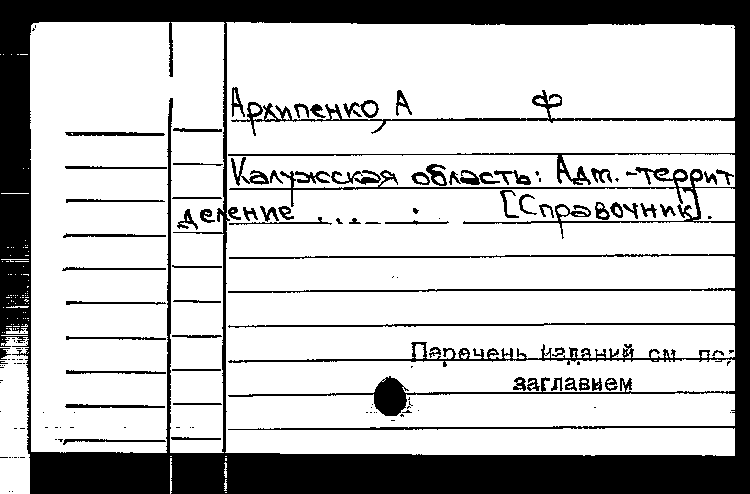 Архипенко, А Ф
Калужская область: Адм.-террит
деление ... : [Справочник].
Перечень изданий см. под
заглавием